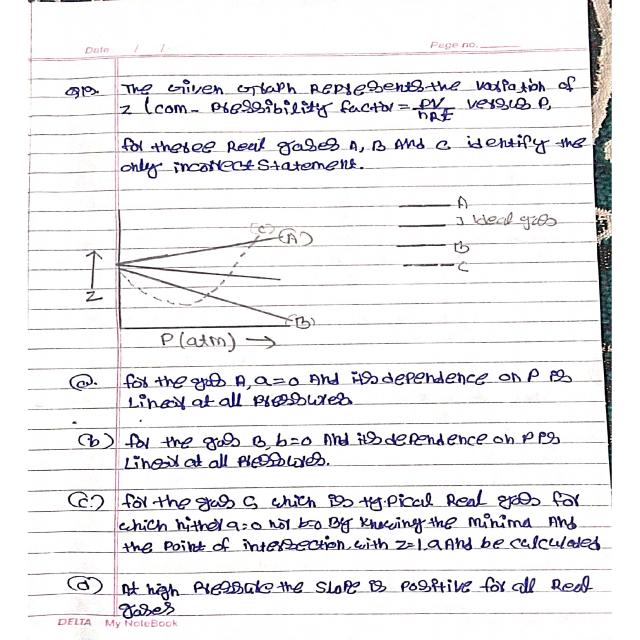 Date / / Page no.
Q19. The Given Graph Represents the variation of
z (com- Pressibility factor = PV/nRt versus P,
for theree Real gases A, B And C identify the
only incorrect Statement.
A
ideal gas
(C) (A)
B
C
Z
(B)
P(atm) →
(a). for the gas A, a=0 And its dependence on P is
Linear at all Pressures
(b) for the gas B, b=0 And its dependence on P is
Linear at all Pressures.
(C.) for the gas C, which is typical Real gas for
which nither a=0 nor b=0 By Knowing the minima And
the Point of intersection, with Z=1, a And b calculated
(d) At high Pressure the Slope is Positive for all Real
gases
DELTA My NoteBook